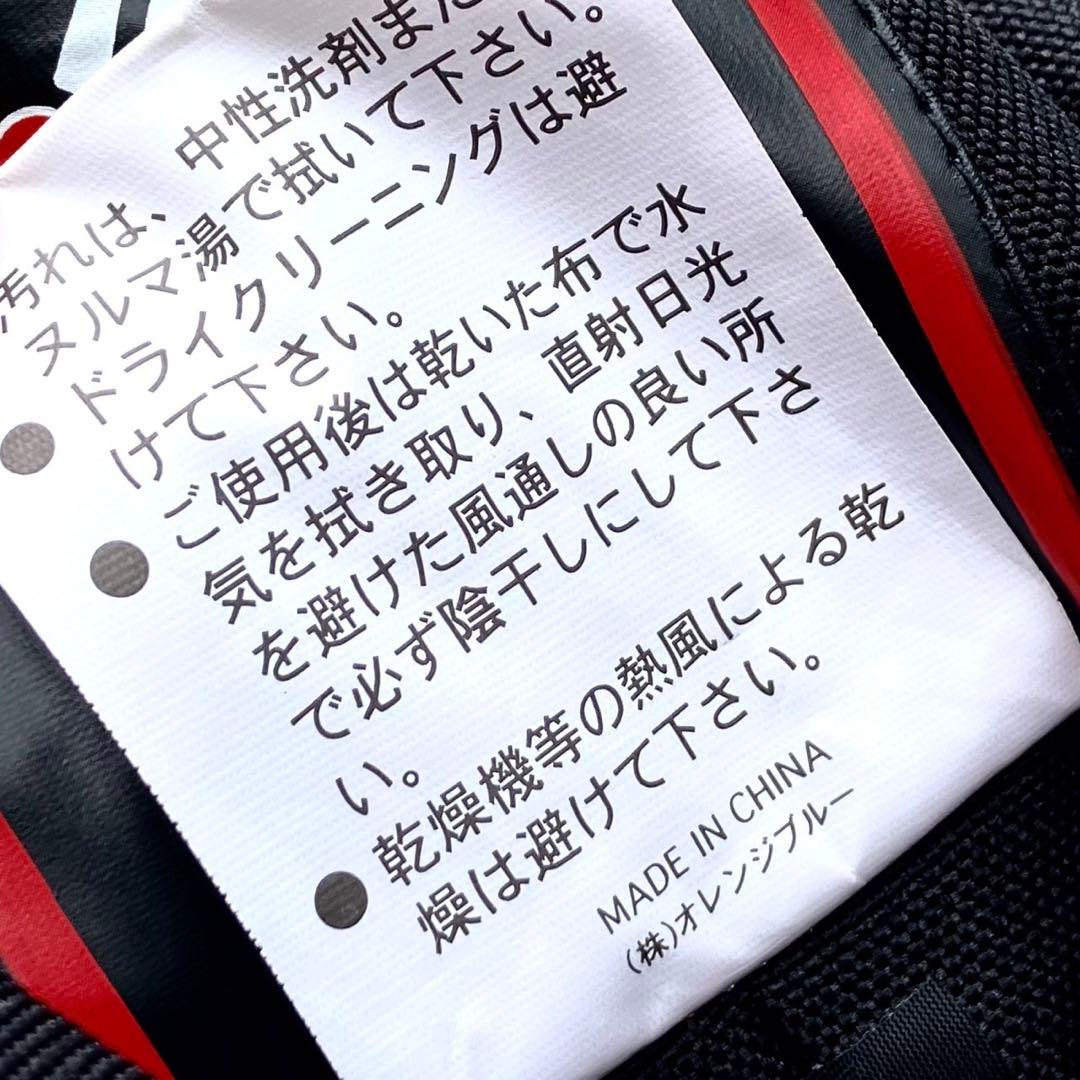 汚れは、中性洗剤また
ヌルマ湯で拭いて下さい。
ドライクリーニングは避
けて下さい。
● ご使用後は乾いた布で水
気を拭き取り、直射日光
を避けた風通しの良い所
で必ず陰干しにして下さ
い。
● 乾燥機等の熱風による乾
燥は避けて下さい。
MADE IN CHINA
(株)オレンジブルー